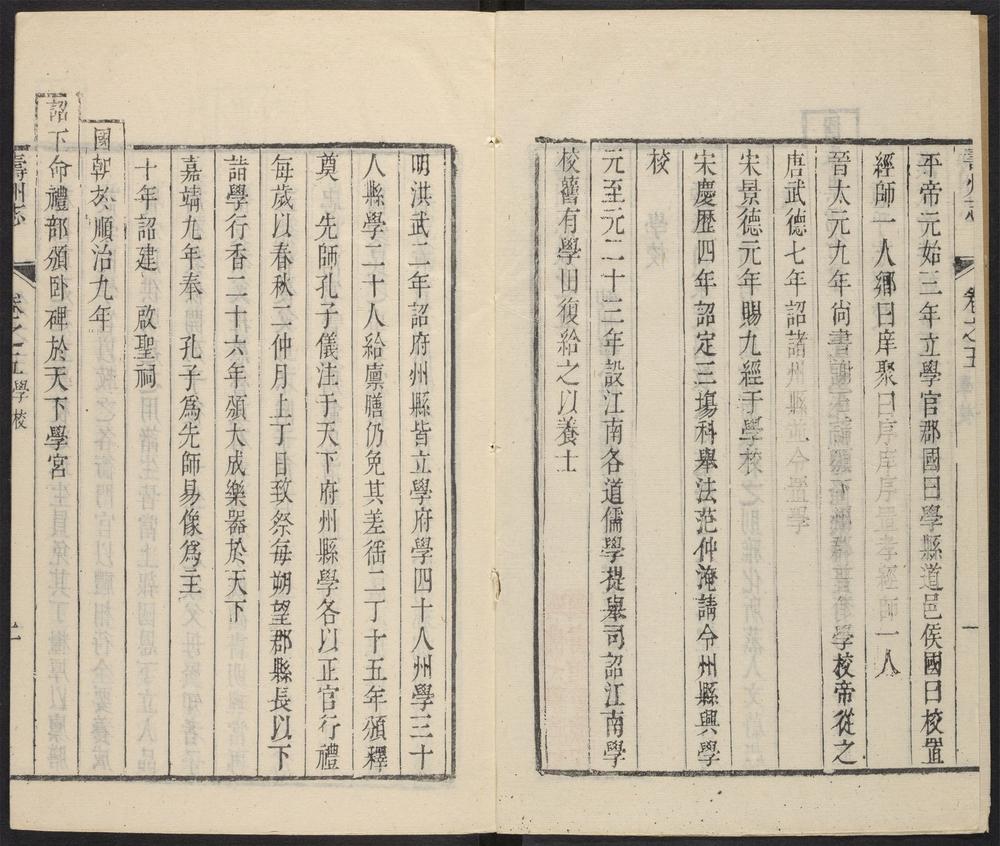 壽州志 卷之五 一
平帝元始三年立學官郡國曰學縣道邑侯國曰校置
經師一人鄉曰庠聚曰序庠序置孝經師一人
晉太元九年尚書謝石 州郡 學校帝從之
唐武德七年詔諸州縣並令置學
宋景德元年賜九經于學校
宋慶歷四年詔定三塲科舉法范仲淹請令州縣興學
校
元至元二十三年設江南各道儒學提舉司詔江南學
校舊有學田復給之以養士
明洪武二年詔府州縣皆立學府學四十人州學三十
人縣學二十人給廩膳仍免其差徭二丁十五年頒釋
奠 先師孔子儀注于天下府州縣學各以正官行禮
每歲以春秋二仲月上丁日致祭每朔望郡縣長以下
詣學行香二十六年頒大成樂器於天下
嘉靖九年奉 孔子爲先師易像爲主
十年詔建 啟聖祠
國朝於順治九年
詔下命禮部頒卧碑於天下學宮
壽州志 卷之五學校 二